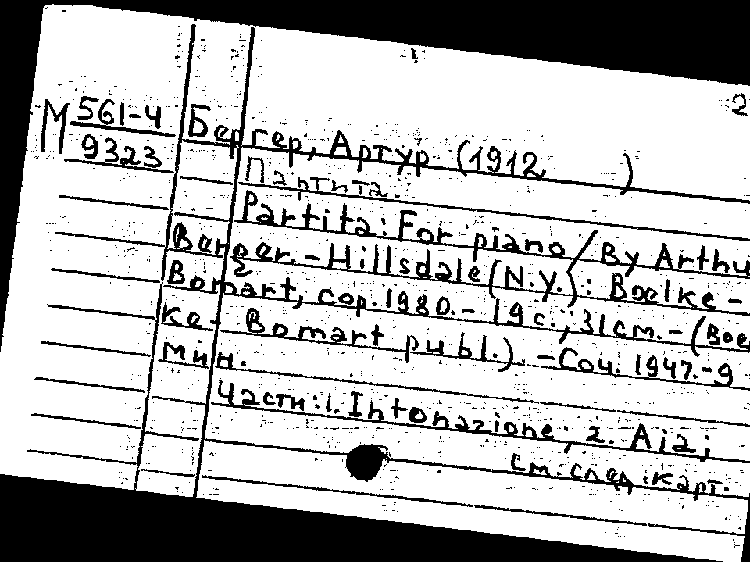 2
М 561-4 Бергер, Артур (1912 )
9323 Партита.
Partita: For piano / By Arthu
Berger. - Hillsdale (N.Y.): Boelke -
Bomart, cop. 1980. - 19 с.; 31 см. - (Boe
ke - Bomart publ.). - Соч. 1947. - 9
мин.
Части: 1. Intonazione; 2. Aia;
см. след. карт.